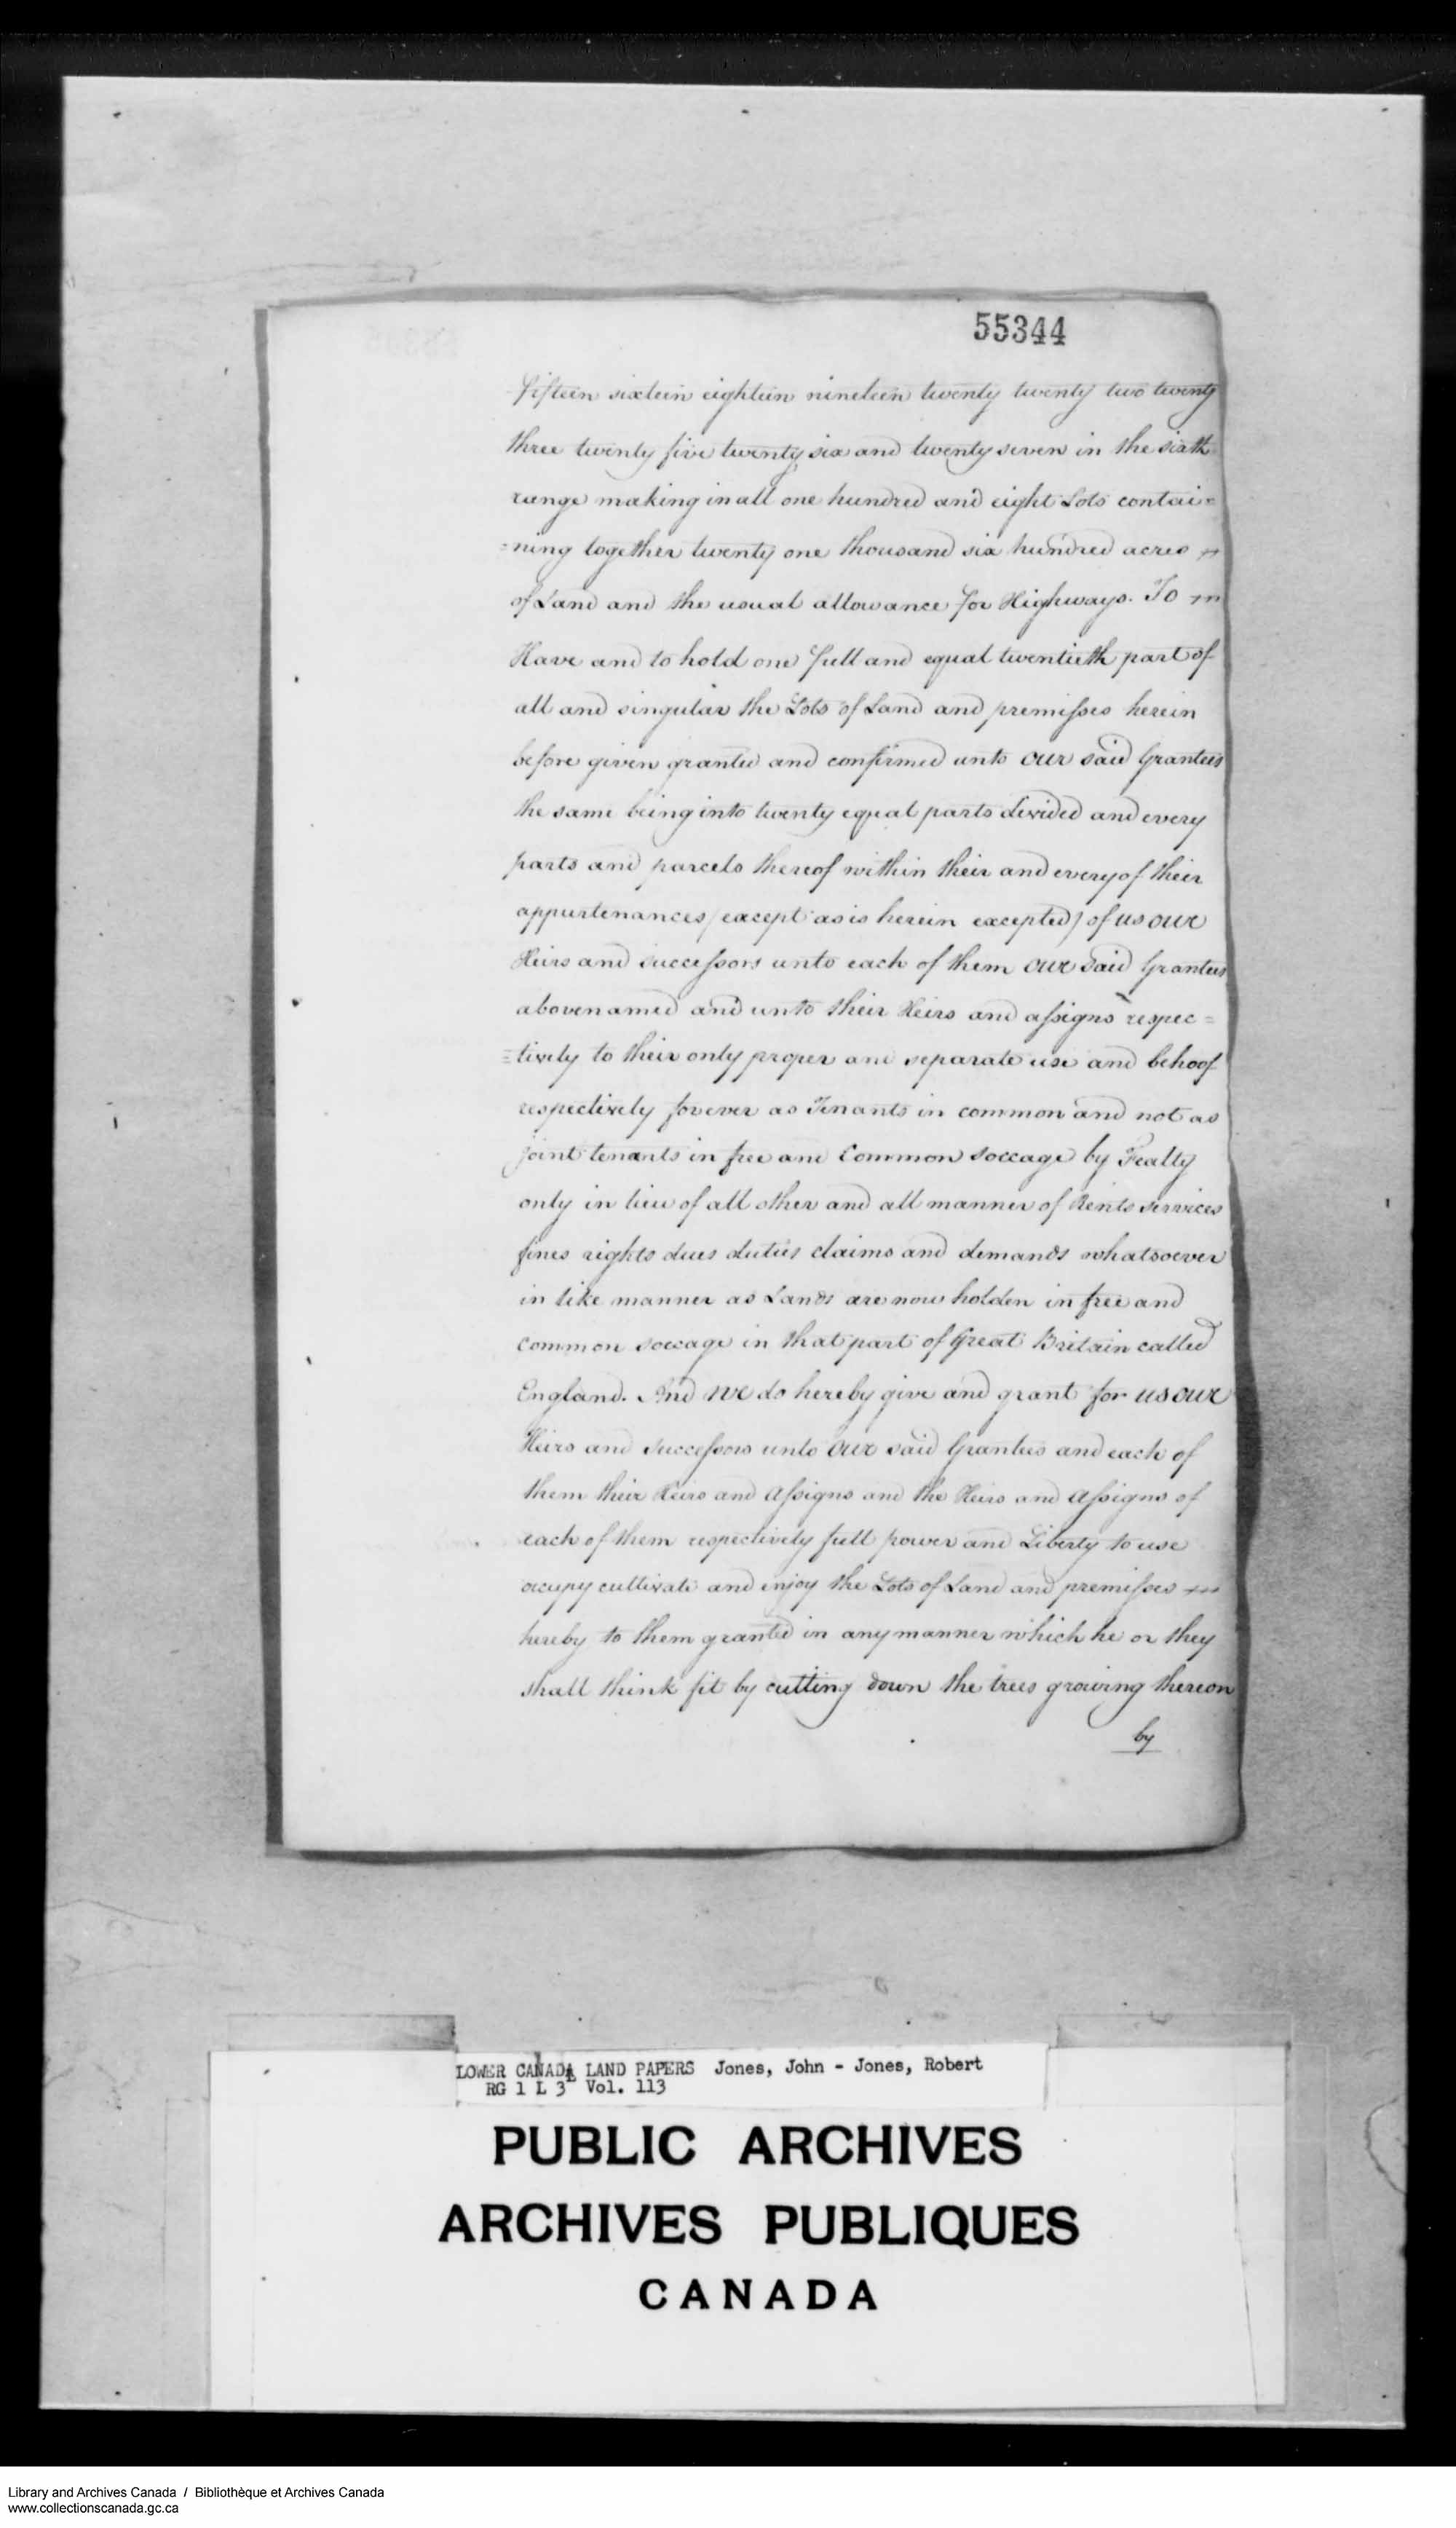 55344
fifteen sixteen eighteen nineteen twenty twenty two twenty
three twenty five twenty six and twenty seven in the sixth
range making in all one hundred and eight Lots contai=
=ning together twenty one thousand six hundred acres
of Land and the usual allowance for Highways. To
Have and to hold one full and equal twentieth part of
all and singular the Lots of Land and premisses herein
before given granted and confirmed unto our said Grantees
the same being into twenty equal parts divided and every
parts and parcels thereof within their and every of their
appurtenances (except as is herein excepted) of us our
Heirs and successors unto each of them our said Grantees
abovenamed and unto their Heirs and assigns respec=
=tively to their only proper and separate use and behoof
respectively forever as Tenants in common and not as
joint tenants in free and Common soccage by Fealty
only in lieu of all other and all manner of Rents services
fines rights dues duties claims and demands whatsoever
in like manner as Lands are now holden in free and
common soccage in that part of Great Britain called
England. And we do hereby give and grant for us our
Heirs and successors unto our said Grantees and each of
them their Heirs and Assigns and the Heirs and Assigns of
each of them respectively full power and Liberty to use
occupy cultivate and enjoy the Lots of Land and premisses
hereby to them granted in any manner which he or they
shall think fit by cutting down the trees growing thereon
by
LOWER CANADA LAND PAPERS Jones, John - Jones, Robert
RG 1 L 3 Vol. 113
PUBLIC ARCHIVES
ARCHIVES PUBLIQUES
CANADA
Library and Archives Canada / Bibliothèque et Archives Canada
www.collectionscanada.gc.ca